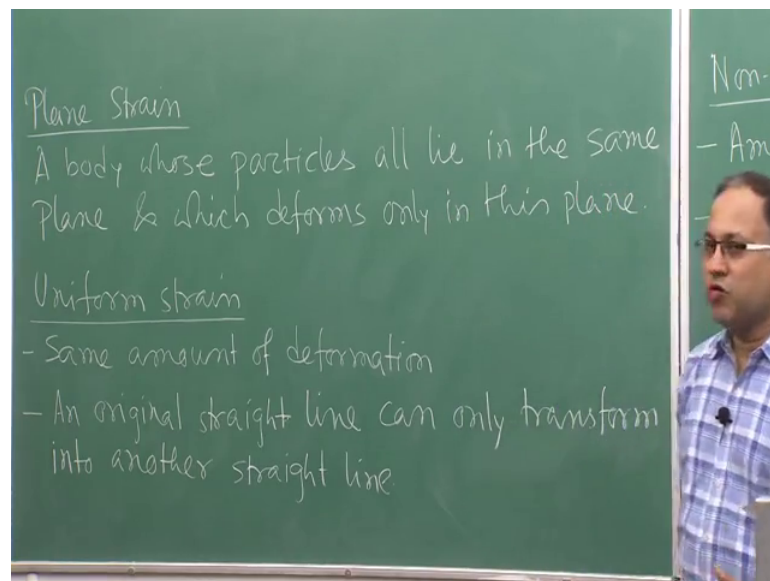 Plane Strain
A body whose particles all lie in the same
plane & which deforms only in this plane.
Uniform strain
- Same amount of deformation
- An original straight line can only transform
into another straight line.
Non-
- Am
-